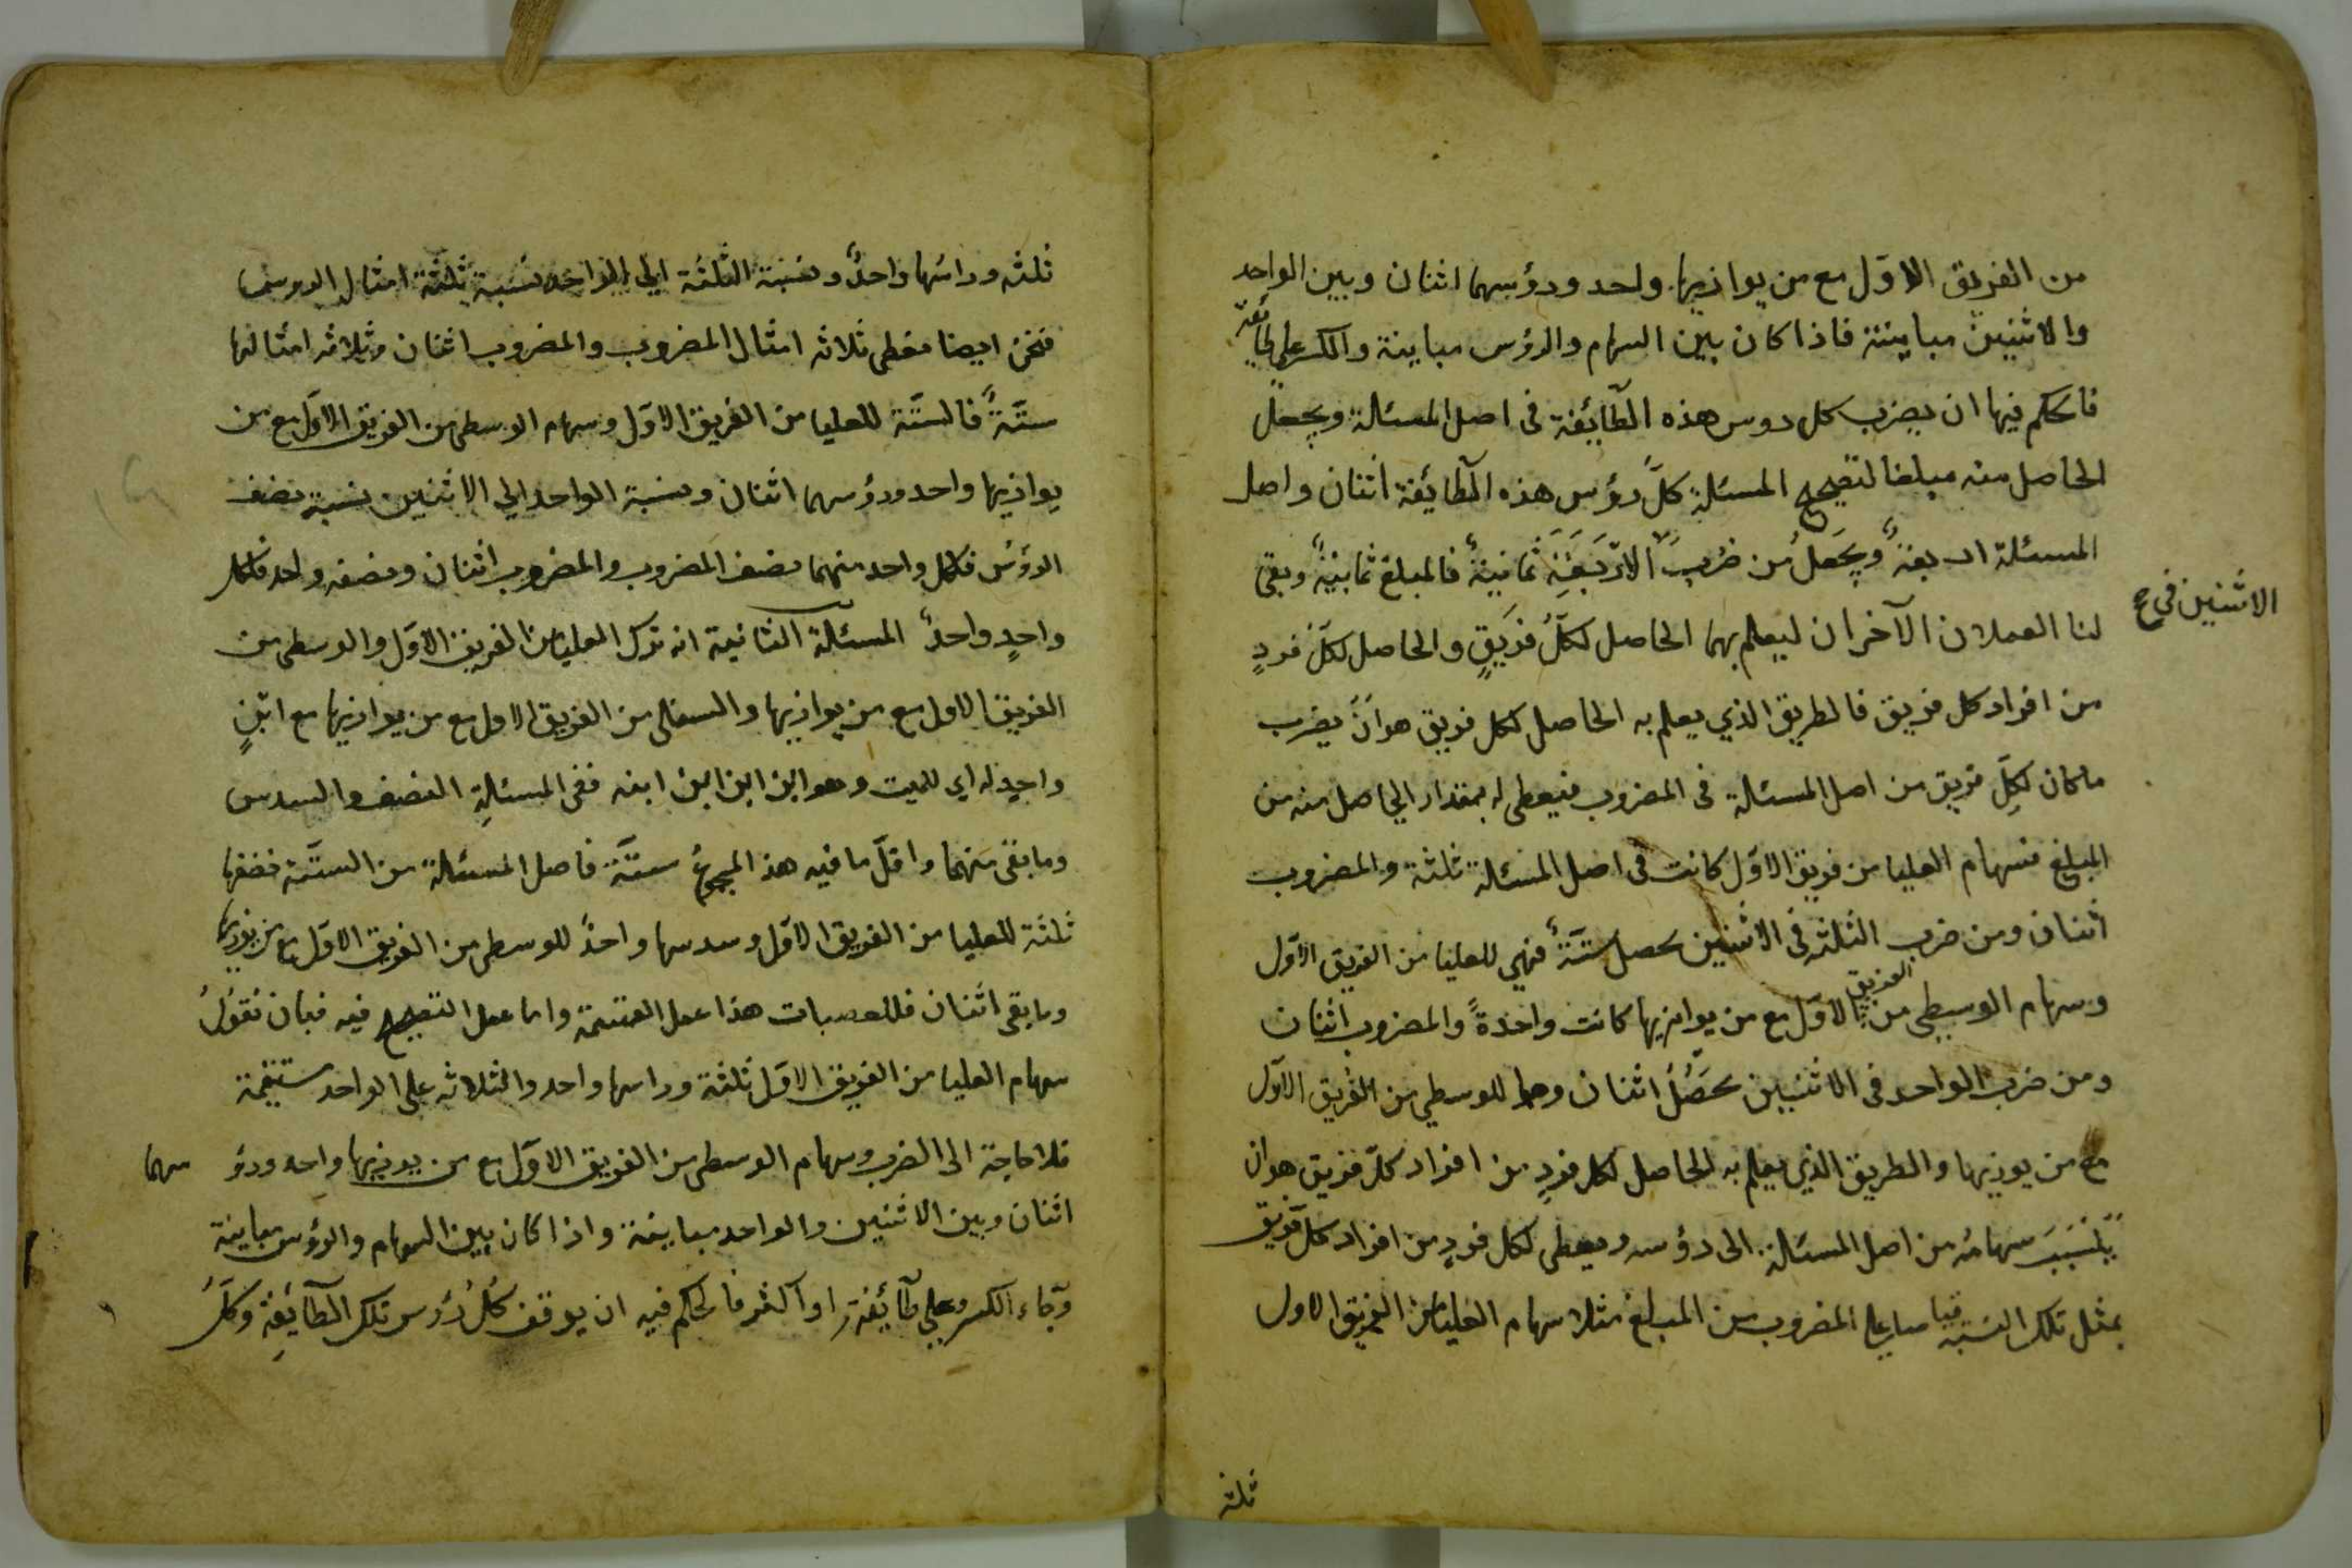 من الفريق الاول مع من يوازيها واحد ورؤسهما اثنان وبين الواحد
والاثنين مباينة فاذا كان بين السهام والرؤس مباينة والكسر على طائفة
فالحكم فيها ان يضرب كل روس هذه الطائفة فى اصل المسئلة ويجعل
الحاصل منه مبلغا لتصحيح المسئلة كل رؤس هذه الطائفة اثنان واصل
المسئلة اربعة ويجعل من ضرب الاربعة ثمانية فالمبلغ ثمانية وبقى
الاثنين فى صح
لنا العملان الآخران ليعلم بهما الحاصل لكل فريق والحاصل لكل فرد
من افراد كل فريق فالطريق الذي يعلم به الحاصل لكل فريق هو ان يضرب
ما كان لكل فريق من اصل المسئلة فى المضروب فيعطى له بمقدار الحاصل منه من
المبلغ فسهام العليا من فريق الاول كانت فى اصل المسئلة ثلثة والمضروب
اثنان ومن ضرب الثلثة فى الاثنين يحصل ستة فهي للعليا من الفريق الاول
وسهام الوسطي من الفريق الاول مع من يوازيها كانت واحدة والمضروب اثنان
ومن ضرب الواحد فى الاثنين يحصل اثنان وهما للوسطي من الفريق الاول
مع من يوزيها والطريق الذي يعلم به الحاصل لكل فرد من افراد كل فريق هو ان
ينسب سهامه من اصل المسئلة الى رؤسه ويعطى لكل فرد من افراد كل فريق
بمثل تلك النسبة المضروب من المبلغ مثلا سهام العليا من الفريق الاول
ثلثة
ثلثه وراسها واحد ونسبة الثلثة الي الواحد نسبة ثلثة امثال الروس
فنحن ايضا نعطى ثلاثه امثال المضروب والمضروب اثنان وثلاثه امثالها
ستة فالستة للعليا من الفريق الاول وسهام الوسطى من الفريق الاول مع من
يوازيها واحد ورؤسهما اثنان ونسبة الواحد الي الاثنين نسبة نصف
الرؤس فلكل واحد منهما نصف المضروب والمضروب اثنان ونصفه واحد فلكل
واحد واحد المسئلة الثانية انه ترك العليا من الفريق الاول والوسطى من
الفريق الاول مع من يوازيها والسفلى من الفريق الاول مع من يوازيها مع ابن
واحد له اي للميت وهو ابن ابن ابن ابنه ففى المسئلة النصف والسدس
وما بقى منهما واقل ما فيه هذ المجموع ستة فاصل المسئلة من الستة فنصفها
ثلثة للعليا من الفريق الاول وسدسها واحد للوسطى من الفريق الاول مع من يوزيها
وما بقى اثنان فللعصبات هذا عمل القسمة واما عمل التصحيح فيه فبان نقول
سهام العليا من الفريق الاول ثلثة وراسها واحد والثلاثه على الواحد مستقيمة
فلا حاجة الى الضرب وسهام الوسطى من الفريق الاول مع من يوزيها واحد ورؤ سهما
اثنان وبين الاثنين والواحد مباينة واذا كان بين السهام والرؤس مباينة
وجاء الكسر على طائفة او اكثر فالحكم فيه ان يوقف كل رؤس تلك الطائفة وكل